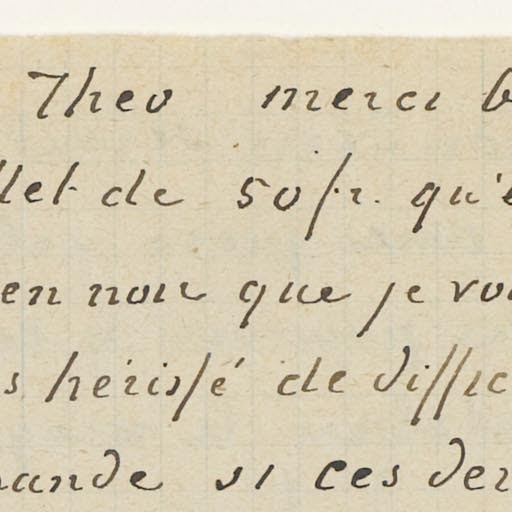 Theo merci b
llet de 50 fr. qu'e
en noir que je vou
s hérissé de diffic
mande si ces der